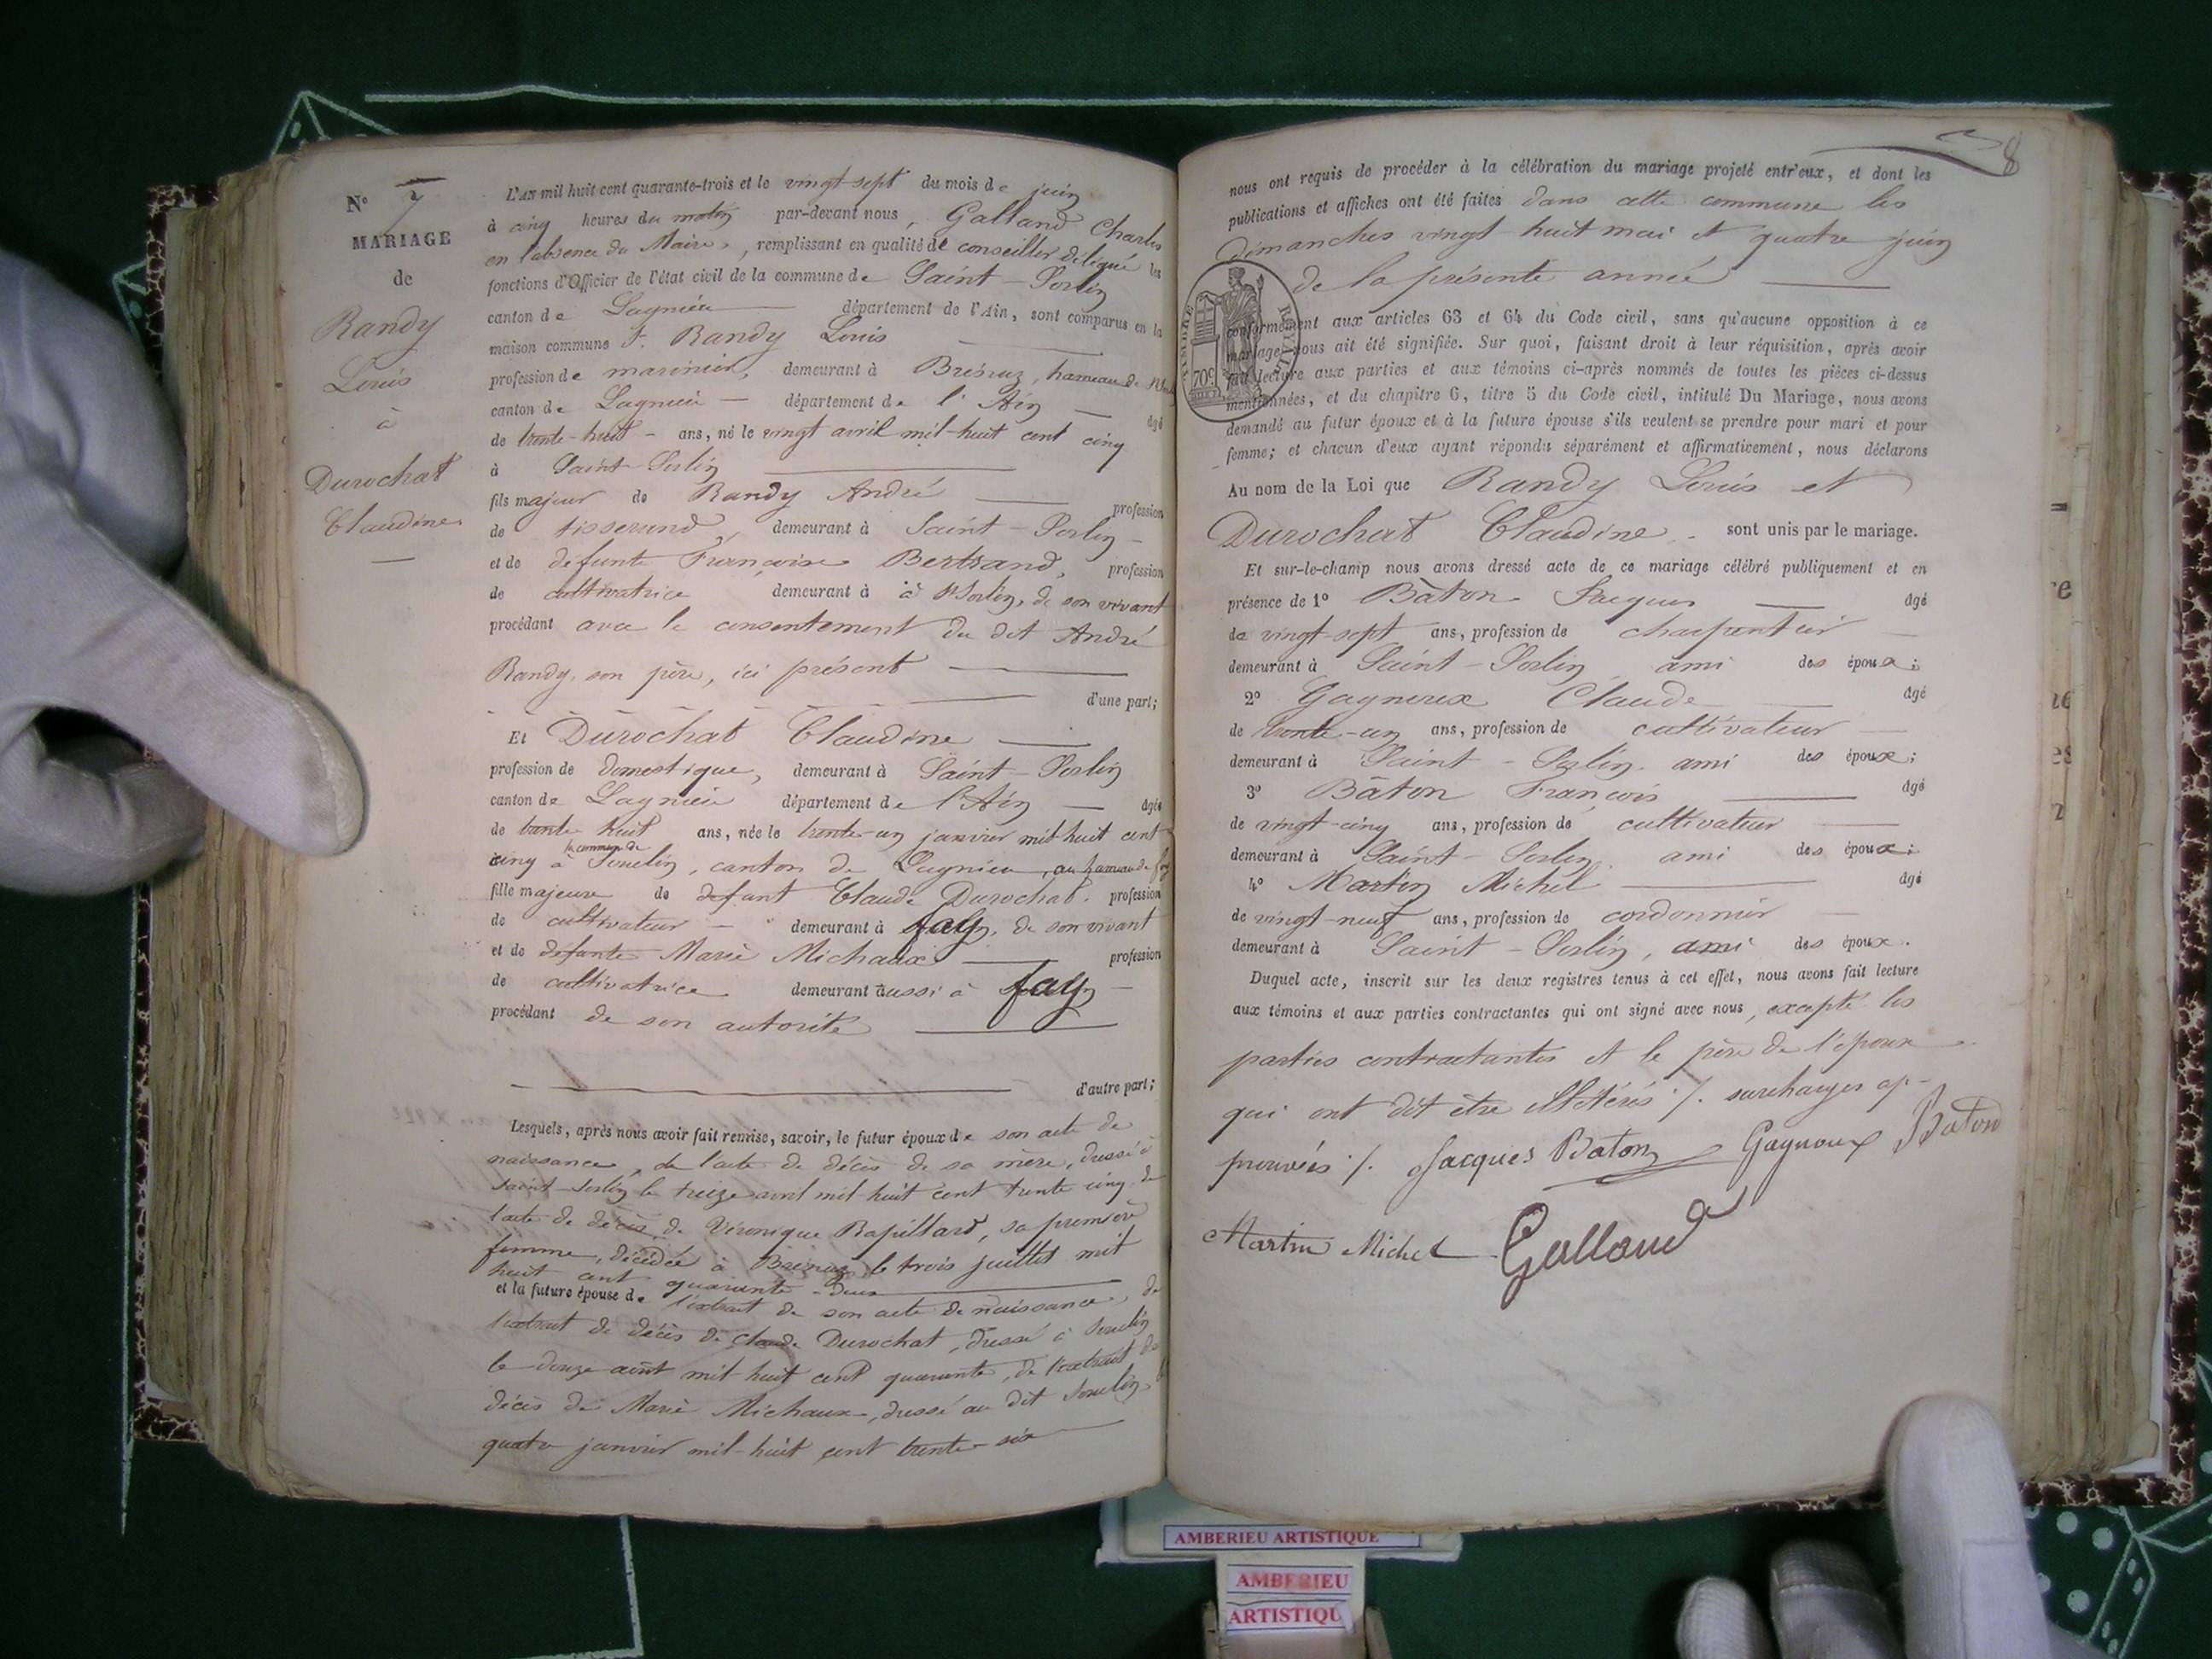 N° 7
MARIAGE
de
Randy
Louis
à
Durochat
Claudine
L'an mil huit cent quarante-trois et le vingt-sept du mois de juin
à cinq heures du matin par-devant nous, Galland Charles
en l'absence du Maire, remplissant en qualité de conseiller délégué les
fonctions d'Officier de l'état civil de la commune de Saint-Sorlin
canton de Lagnieu département de l'Ain, sont comparus en la
maison commune Randy Louis
profession de marinier, demeurant à Brénaz, hameau de
canton de Lagnieu département de l'Ain âgé
de trente-huit ans, né le vingt avril mil-huit cent cinq
à Saint-Sorlin
fils majeur de Randy André profession
de tisserand, demeurant à Saint-Sorlin
et de défunte Françoise Bertrand, profession
de cultivatrice demeurant à à St Sorlin, de son vivant
procédant avec le consentement du dit André
Randy, son père, ici présent
d'une part;
Et Durochat Claudine
profession de domestique, demeurant à Saint-Sorlin
canton de Lagnieu département de l'Ain âgée
de trente huit ans, née le trente-un janvier mil-huit cent
cinq à la commune de Souclin, canton de Lagnieu, au hameau de fay
fille majeure de défunt Claude Durochat. profession
de cultivateur demeurant à fay, de son vivant
et de défunte Marie Michaux profession
de cultivatrice demeurant aussi à fay
procédant de son autorité
d'autre part;
Lesquels, après nous avoir fait remise, savoir, le futur époux de son acte de
naissance, de l'acte de décès de sa mère, dressé à
Saint-Sorlin le treize avril mil-huit cent trente cinq, de
l'acte de décès de Véronique Rapillard, sa première
femme, décédée à Brénaz le trois juillet mil
huit cent quarante-deux
et la future épouse de l'extrait de son acte de naissance, de
l'extrait de décès de Claude Durochat, dressé à Souclin
le douze août mil huit cent quarante, de l'extrait de
décès de Marie Michaux, dressé au dit Souclin, le
quatre janvier mil-huit cent trente-six
8
nous ont requis de procéder à la célébration du mariage projeté entr'eux, et dont les
publications et affiches ont été faites dans cette commune les
Dimanches vingt-huit mai et quatre juin
de la présente année
TIMBRE ROYAL
70c
conformément aux articles 63 et 64 du Code civil, sans qu'aucune opposition à ce
mariage nous ait été signifiée. Sur quoi, faisant droit à leur réquisition, après avoir
fait lecture aux parties et aux témoins ci-après nommés de toutes les pièces ci-dessus
mentionnées, et du chapitre 6, titre 5 du Code civil, intitulé Du Mariage, nous avons
demandé au futur époux et à la future épouse s'ils veulent se prendre pour mari et pour
femme; et chacun d'eux ayant répondu séparément et affirmativement, nous déclarons
Au nom de la Loi que Randy Louis et
Durochat Claudine sont unis par le mariage.
Et sur-le-champ nous avons dressé acte de ce mariage célébré publiquement et en
présence de 1° Bâton Jacques âgé
de vingt-sept ans, profession de charpentier
demeurant à Saint-Sorlin ami des époux;
2° Gagneux Claude âgé
de trente-un ans, profession de cultivateur
demeurant à Saint-Sorlin ami des époux;
3° Bâton François âgé
de vingt-cinq ans, profession de cultivateur
demeurant à Saint-Sorlin ami des époux;
4° Martin Michel âgé
de vingt-neuf ans, profession de cordonnier
demeurant à Saint-Sorlin, ami des époux.
Duquel acte, inscrit sur les deux registres tenus à cet effet, nous avons fait lecture
aux témoins et aux parties contractantes qui ont signé avec nous, excepté les
parties contractantes et le père de l'époux
qui ont dit être illétérés ./. surcharges ap-
prouvées ./. Jacques Baton Gagnoux Baton
Martin Michel Galland
AMBERIEU ARTISTIQUE
AMBERIEU
ARTISTIQU